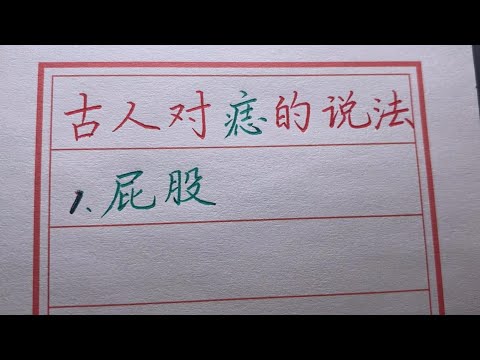 古人对痣的说法
1、屁股